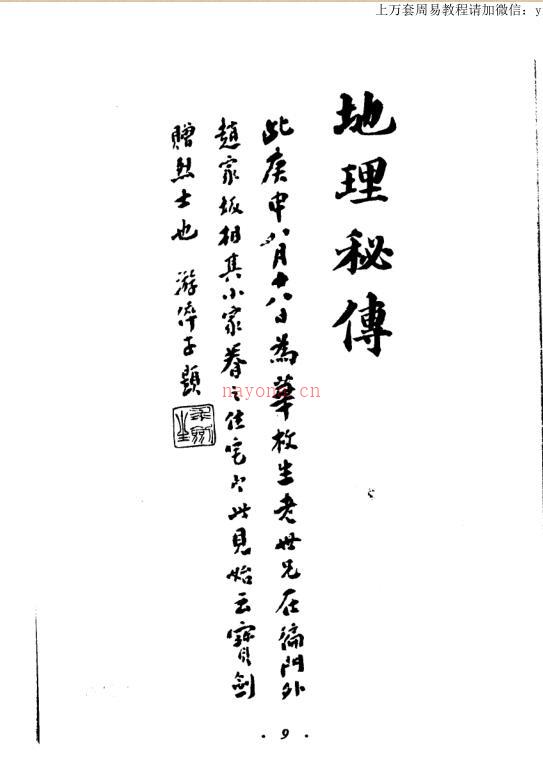 上万套周易教程请加微信：y
地理秘傳
此庚申八月十八日為華枚生老世兄在偏門外
趙家坂相其小家眷之住宅，此見始云寶劍
贈烈士也 游齊子題
nayona.cn
· 9 ·